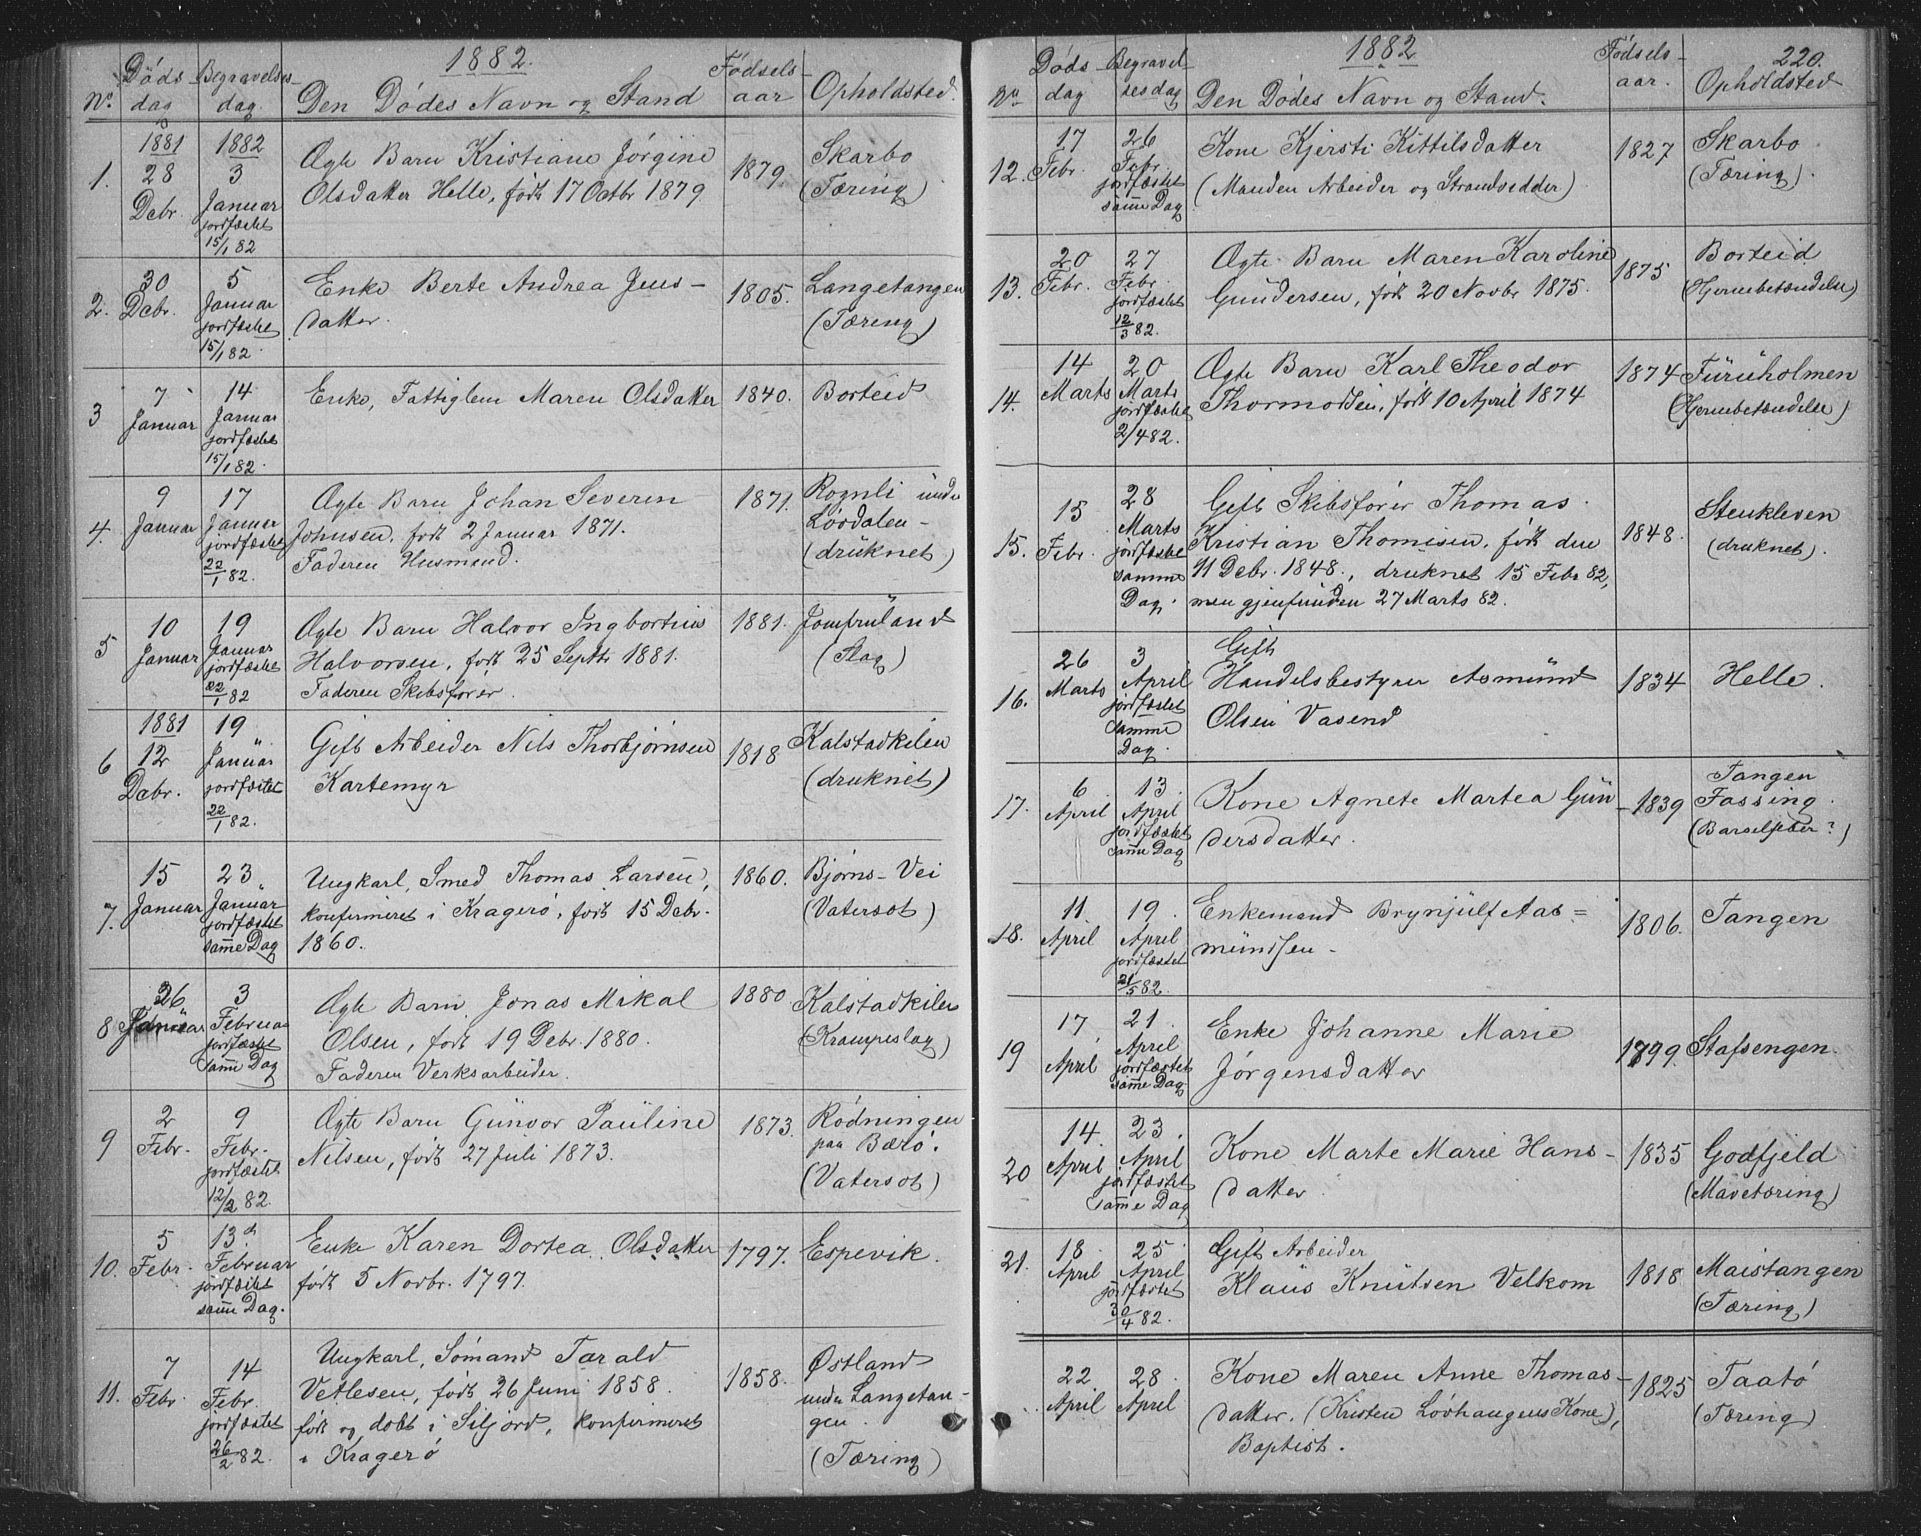 1882.
No. Döds- dag Begravelses- dag. Den Dödes Navn og Stand Fødsels- aar Opholdsted.
1. 1881 28 Debr. 1882 3 Januar jordfæstet 15/1 82 Ægte Barn Kristiane Jørgine 1879. Skarbo
Olsdatter Helle, født 17 Octbr 1879 (Tæring)
2. 30 Debr. 5 Januar jordfæstet 15/1 82. Enke Berte Andrea Jens- 1805. Langetangen
datter. (Tæring)
3 7 Januar 14 Januar jordfæstet 15/1 82. Enke, Fattiglem Maren Olsdatter 1840. Borteid
4. 9 Januar 17 Januar jordfæstet 22/1 82. Ægte Barn Johan Severin 1871. Rognli under
Johnsen, født 2 Januar 1871. Lövdalen-
Faderen Husmand. (drüknet)
5 10 Januar 19 Januar jordfæstet 22/1 82 Ægte Barn Halvor Ingbortius 1881. Jomfrüland
Halvorsen, født 25 Septbr 1881. (Slag)
Faderen Skibsfører.
6 1881 12 Debr. 19 Januar jordfæstet 22/1 82. Gift Arbeider Nils Thorbjørnsen 1818 Kalstadkilen
Kartemyr (druknet)
7. 15 Januar 23 Januar jordfæstet samme Dag Ungkarl, Smed Thomas Larsen, 1860. Bjørns-Vei
konfirmeret i Kragerø, født 15 Debr. (Vatersot)
1860.
8 26 Januar 3 Februar jordfæstet samme Dag Ægte Barn Jonas Mikal 1880 Kalstadkilen
Olsen, født 19 Debr. 1880. (Krampeslag)
Faderen Verksarbeider.
9 2 Febr. 9 Febr. jordfæstet 12/2 82. Ægte Barn Günvor Paüline 1873. Rödningen
Nilsen, født 27 Juli 1873. paa Bærö.
(Vatersot)
10. 5 Febr. 13 Februar jordfæstet samme Dag. Enke Karen Dortea Olsdatter 1797. Espevik.
født 5 Novbr. 1797.
11. 7 Febr 14 Febr. jordfæstet 26/2 82. Ungkarl, Sömand Tarald 1858. Østland
Vetlesen, født 26 Juni 1858. under Langetan-
født og døbt i Siljord, konfirmeret gen.
i Kragerö (Tæring)
1882 220.
No Döds- dag Begravel- sesdag Den Dödes Navn og Stand. Fødsels- aar. Opholdsted
12. 17 Febr. 26 Febr jordfæstet samme Dag Kone Kjersti Kittilsdatter 1827 Skarbo
(Manden Arbeider og Strandsidder) (Tæring).
13. 20 Febr. 27 Febr. jordfæstet 12/3 82. Ægte Barn Maren Karoline 1875 Borteid
Gundersen, født 20 Novbr 1875. (Hjernebetændelse)
14. 14 Marts 20 Marts jordfæstet 2/4 82. Ægte Barn Karl Theodor 1874 Fürüholmen
Thormodsen, født 10 April 1874 (Hjernebetændelse)
15. 15 Febr. 28 Marts jordfæstet samme Dag. Gift Skibsfører Thomas 1848. Stenkleven
Kristian Thomesen, født den (druknet).
11 Debr. 1848., druknet 15 Febr 82,
men gjenfunden 27 Marts 82.
16. 26 Marts 3 April jordfæstet samme Dag. Gift
Handelsbestyrer Asmünd 1834 Helle.
Olsen Vasend
17. 6 April 13. April jordfæstet samme Dag Kone Agnete Martea Gün- 1839 Tangen
dersdatter. Fassing.
(Barselfeber?)
18. 11 April 19. April jordfæstet 21/5 82. Enkemand Brynjülf Aas= 1806. Tangen
mündsen-
19 17 April 21. April jordfæstet samme Dag Enke Johanne Marie 1799. Stafsengen.
Jørgensdatter
20 14. April 23. April jordfæstet samme Dag Kone Marte Marie Hans- 1835 Godfjeld
datter. (Mavetæring)
21. 18. April 25 April jordfæstet 30/4 82. Gift Arbeider
Klaüs Knütsen Velkom 1818 Maistangen
(Tæring)
22 April 28. April Kone Maren Anne Thomas- 1825 Taatö
datter. (Kristen Lövhaugens Kone), (Tæring)
Baptist.